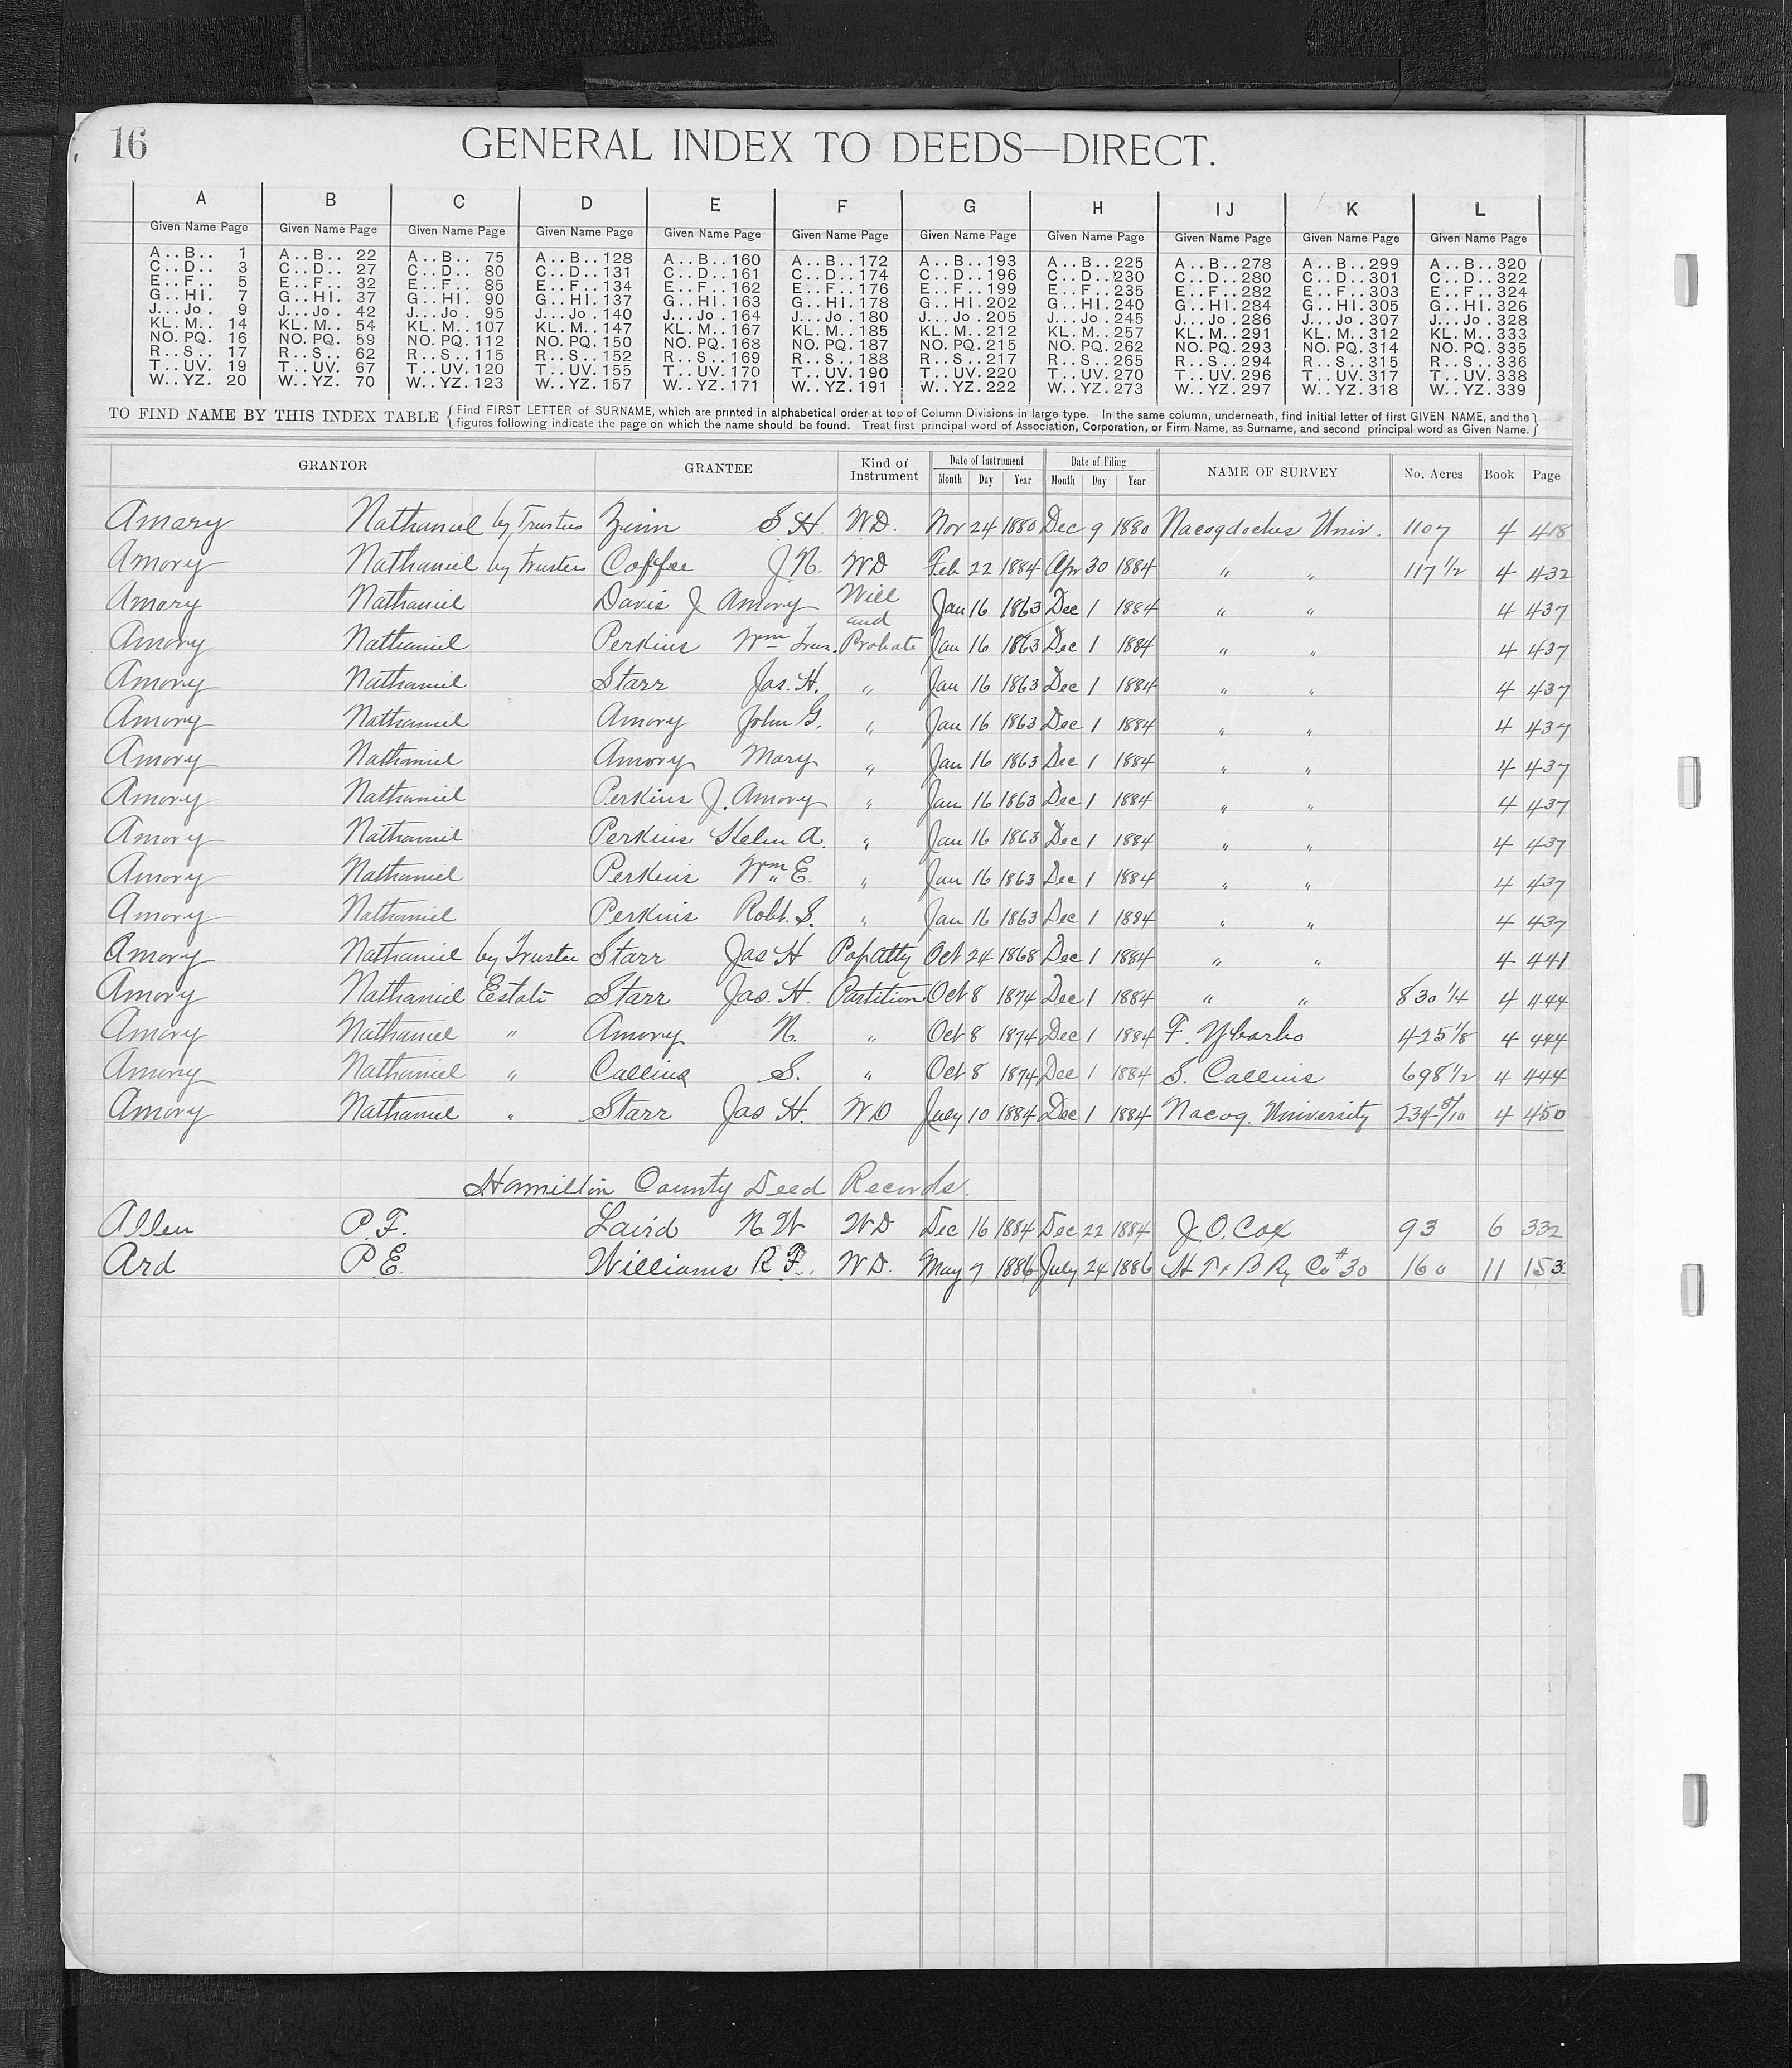 16
GENERAL INDEX TO DEEDS—DIRECT.
A B C D E F G H IJ K L
Given Name Page Given Name Page Given Name Page Given Name Page Given Name Page Given Name Page Given Name Page Given Name Page Given Name Page Given Name Page Given Name Page
A..B.. 1 A..B.. 22 A..B.. 75 A..B..128 A..B..160 A..B..172 A..B..193 A..B..225 A..B..278 A..B..299 A..B..320
C..D.. 3 C..D.. 27 C..D.. 80 C..D..131 C..D..161 C..D..174 C..D..196 C..D..230 C..D..280 C..D..301 C..D..322
E..F.. 5 E..F.. 32 E..F.. 85 E..F..134 E..F..162 E..F..176 E..F..199 E..F..235 E..F..282 E..F..303 E..F..324
G..HI. 7 G..HI. 37 G..HI. 90 G..HI.137 G..HI.163 G..HI.178 G..HI.202 G..HI.240 G..HI.284 G..HI.305 G..HI.326
J...Jo . 9 J...Jo . 42 J...Jo . 95 J...Jo .140 J...Jo .164 J...Jo .180 J...Jo .205 J...Jo .245 J...Jo .286 J...Jo .307 J...Jo .328
KL. M.. 14 KL. M.. 54 KL. M..107 KL. M..147 KL. M..167 KL. M..185 KL. M..212 KL. M..257 KL. M..291 KL. M..312 KL. M..333
NO. PQ. 16 NO. PQ. 59 NO. PQ. 112 NO. PQ. 150 NO. PQ. 168 NO. PQ. 187 NO. PQ. 215 NO. PQ. 262 NO. PQ. 293 NO. PQ. 314 NO. PQ. 335
R...S.. 17 R...S.. 62 R...S..115 R...S..152 R...S..169 R...S..188 R...S..217 R...S..265 R...S..294 R...S..315 R...S..336
T...UV. 19 T...UV. 67 T...UV.120 T...UV.155 T...UV.170 T...UV.190 T...UV.220 T...UV.270 T...UV.296 T...UV.317 T...UV.338
W..YZ. 20 W..YZ. 70 W..YZ.123 W..YZ.157 W..YZ.171 W..YZ.191 W..YZ.222 W..YZ.273 W..YZ.297 W..YZ.318 W..YZ.339
TO FIND NAME BY THIS INDEX TABLE {Find FIRST LETTER of SURNAME, which are printed in alphabetical order at top of Column Divisions in large type. In the same column, underneath, find initial letter of first GIVEN NAME, and the
figures following indicate the page on which the name should be found. Treat first principal word of Association, Corporation, or Firm Name, as Surname, and second principal word as Given Name.}
GRANTOR GRANTEE Kind of Instrument Date of Instrument Date of Filing NAME OF SURVEY No. Acres Book Page
Month Day Year Month Day Year
Amory Nathaniel by Trustees Zinn S. H. W.D. Nov 24 1880 Dec 9 1880 Nacogdoches Univ. 1107 4 418
Amory Nathaniel by Trustees Coffee J. N. WD Feb 22 1884 Apr 30 1884 " " 117 1/2 4 432
Amory Nathaniel Davis J Amory Will and Jan 16 1863 Dec 1 1884 " " 4 437
Amory Nathaniel Perkins Wm Trus. Probate Jan 16 1863 Dec 1 1884 " " 4 437
Amory Nathaniel Starr Jas. H. " Jan 16 1863 Dec 1 1884 " " 4 437
Amory Nathaniel Amory John G. " Jan 16 1863 Dec 1 1884 " " 4 437
Amory Nathaniel Amory Mary " Jan 16 1863 Dec 1 1884 " " 4 437
Amory Nathaniel Perkins J. Amory " Jan 16 1863 Dec 1 1884 " " 4 437
Amory Nathaniel Perkins Helen A. " Jan 16 1863 Dec 1 1884 " " 4 437
Amory Nathaniel Perkins Wm E. " Jan 16 1863 Dec 1 1884 " " 4 437
Amory Nathaniel Perkins Robt. S. " Jan 16 1863 Dec 1 1884 " " 4 437
Amory Nathaniel by Trustee Starr Jas H Pof Atty Oct 24 1868 Dec 1 1884 " " 4 441
Amory Nathaniel Estate Starr Jas. H. Partition Oct 8 1874 Dec 1 1884 " " 830 1/4 4 444
Amory Nathaniel " Amory N. " Oct 8 1874 Dec 1 1884 F. Ybarbo 425 1/8 4 444
Amory Nathaniel " Collins S. " Oct 8 1874 Dec 1 1884 S. Collins 698 1/2 4 444
Amory Nathaniel " Starr Jas H. WD July 10 1884 Dec 1 1884 Nacog. University 4 450
Hamilton County Deed Records.
Allen P. F. Laird N. W WD Dec 16 1884 Dec 22 1884 J. O. Cox 93 6 332
Ard P. E. Williams R F. WD. May 7 1886 July 24 1886 H T & B Ry Co #30 160 11 153